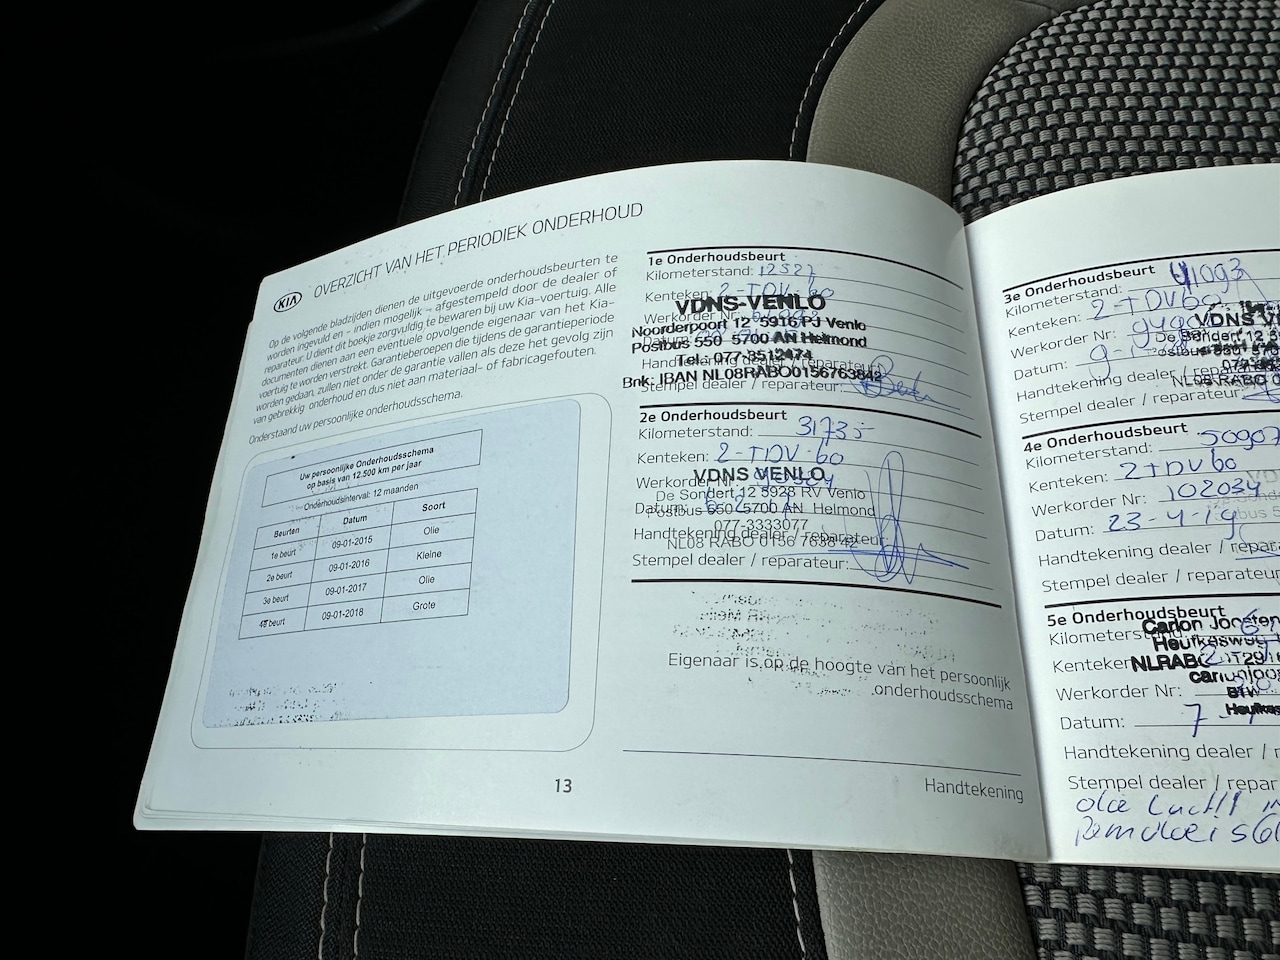 KIA OVERZICHT VAN HET PERIODIEK ONDERHOUD
Op de volgende bladzijden dienen de uitgevoerde onderhoudsbeurten te
worden ingevuld en – indien mogelijk – afgestempeld door de dealer of
reparateur. U dient dit boekje zorgvuldig te bewaren bij uw Kia-voertuig. Alle
documenten dienen aan een eventuele opvolgende eigenaar van het Kia-
voertuig te worden verstrekt. Garantieberoepen die tijdens de garantieperiode
worden gedaan, zullen niet onder de garantie vallen als deze het gevolg zijn
van gebrekkig onderhoud en dus niet aan materiaal- of fabricagefouten.
Onderstaand uw persoonlijke onderhoudsschema.
Uw persoonlijke Onderhoudsschema
op basis van 12.500 km per jaar
Onderhoudsinterval: 12 maanden
Beurten Datum Soort
1e beurt 09-01-2015 Olie
2e beurt 09-01-2016 Kleine
3e beurt 09-01-2017 Olie
4e beurt 09-01-2018 Grote
13
1e Onderhoudsbeurt
Kilometerstand: 12527
Kenteken: 2-TDV-60
VDNS-VENLO
Werkorder Nr:
Noorderpoort 12 5916 PJ Venlo
Postbus 550 5700 AN Helmond
Tel.: 077-3512474
Handtekening dealer / reparateur:
Bnk: IBAN NL08RABO0156763842
Stempel dealer / reparateur:
2e Onderhoudsbeurt
Kilometerstand: 31735
Kenteken: 2-TDV-60
VDNS VENLO
Werkorder Nr:
De Sondert 12 5928 RV Venlo
Datum:
Postbus 550 5700 AN Helmond
077-3333077
Handtekening dealer / reparateur:
NL08 RABO 0156 7638 42
Stempel dealer / reparateur:
Eigenaar is op de hoogte van het persoonlijk
onderhoudsschema
Handtekening
3e Onderhoudsbeurt
Kilometerstand: 41093
Kenteken: 2-TDV60
Werkorder Nr:
VDNS V
De Sondert 12 5
Datum:
Handtekening dealer / rep
NL08 RABO 0
Stempel dealer / reparateur:
4e Onderhoudsbeurt
Kilometerstand: 50907
Kenteken: 2TDV60
Werkorder Nr: 102034
Datum: 23-4-19
Handtekening dealer / repara
Stempel dealer / reparateur:
5e Onderhoudsbeurt
Carlon Joosten
Kilometerst
Heufkesweg
Kenteken
NLRABO
Werkorder Nr:
BTW
Datum: 7
Handtekening dealer / r
Stempel dealer / repar
olie Lucht